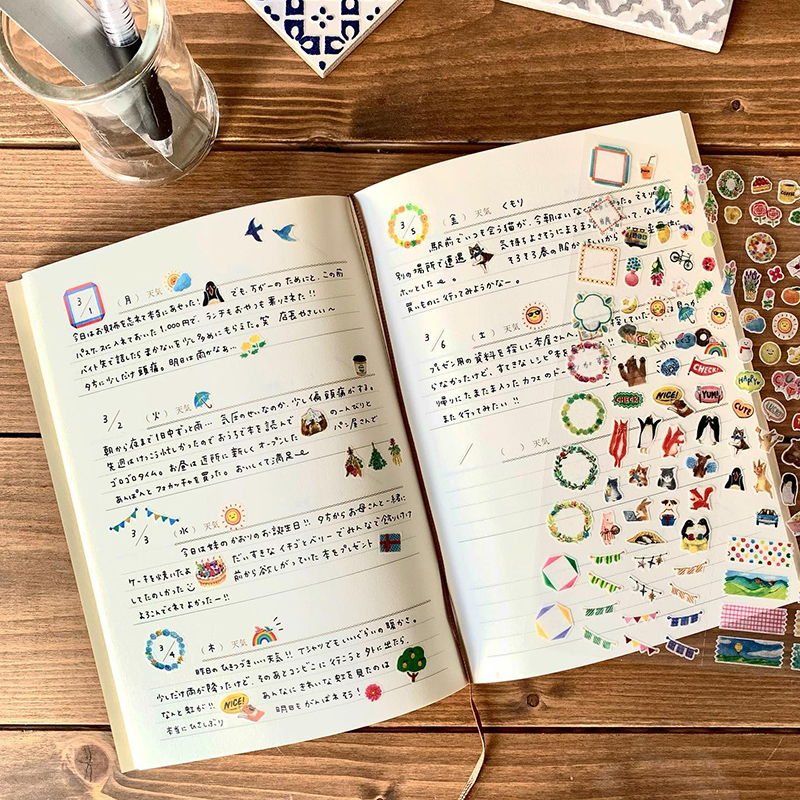 3/1 (月) 天気
今日はお財布を忘れて本当にあせった! でも、万が一のためにと、この前
パスケースに入れておいた1,000円で、ランチもおやつも乗りきれた!!
バイト先で話したらまかないを少し多めにもらえた。笑 店長やさしい〜
夕方に少しだけ頭痛。明日は雨かなぁ…
3/2 (火) 天気
朝から夜まで1日中ずっと雨…。気圧のせいなのか、少し偏頭痛がする。
先週はけっこう忙しかったのでおうちで本を読んで のーんびりと
ゴロゴロタイム。お昼は近所に新しくオープンした パン屋さんで
あんぱんとフォカッチャを買った。おいしくて満足
3/3 (水) 天気
今日は妹のかおりのお誕生日!! 夕方からお母さんと一緒に
ケーキを焼いたよ だいすきなイチゴとベリーでみんなで飾り付け
してたのしかった 前から欲しがっていた本もプレゼント
よろこんでくれてよかったー!!
3/4 (木) 天気
昨日のひきつづきいい天気!! Tシャツでもいいぐらいの暖かさ。
少しだけ雨が降ったけど、そのあとコンビニに行こうと外に出たら、
なんと虹が!! NICE! あんなにきれいな虹を見たのは
本当にひさしぶり 明日もがんばれそう!
3/5 (金) 天気 くもり
駅前でいつも会う猫が、今朝はいな
別の場所で遭遇 気持ちよさそうにまるま
ホッとした〜。 そろそろ春の服が
買いものに行ってみようかなー。
3/6 (土) 天気
プレゼン用の資料を探しに本屋さんへ
らなかったけど、すてきなレシピ本を
帰りにたまたま入ったカフェの
また行ってみたい!!
/ ( ) 天気
CHECK!
CHECK!
NICE!
YUM!
HAPPY
CUTE